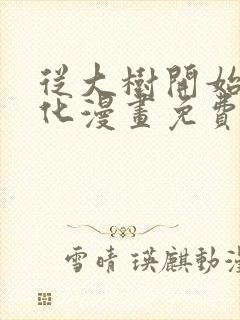 從大樹開始
化漫畫免費
雪晴 瑛麒動漫